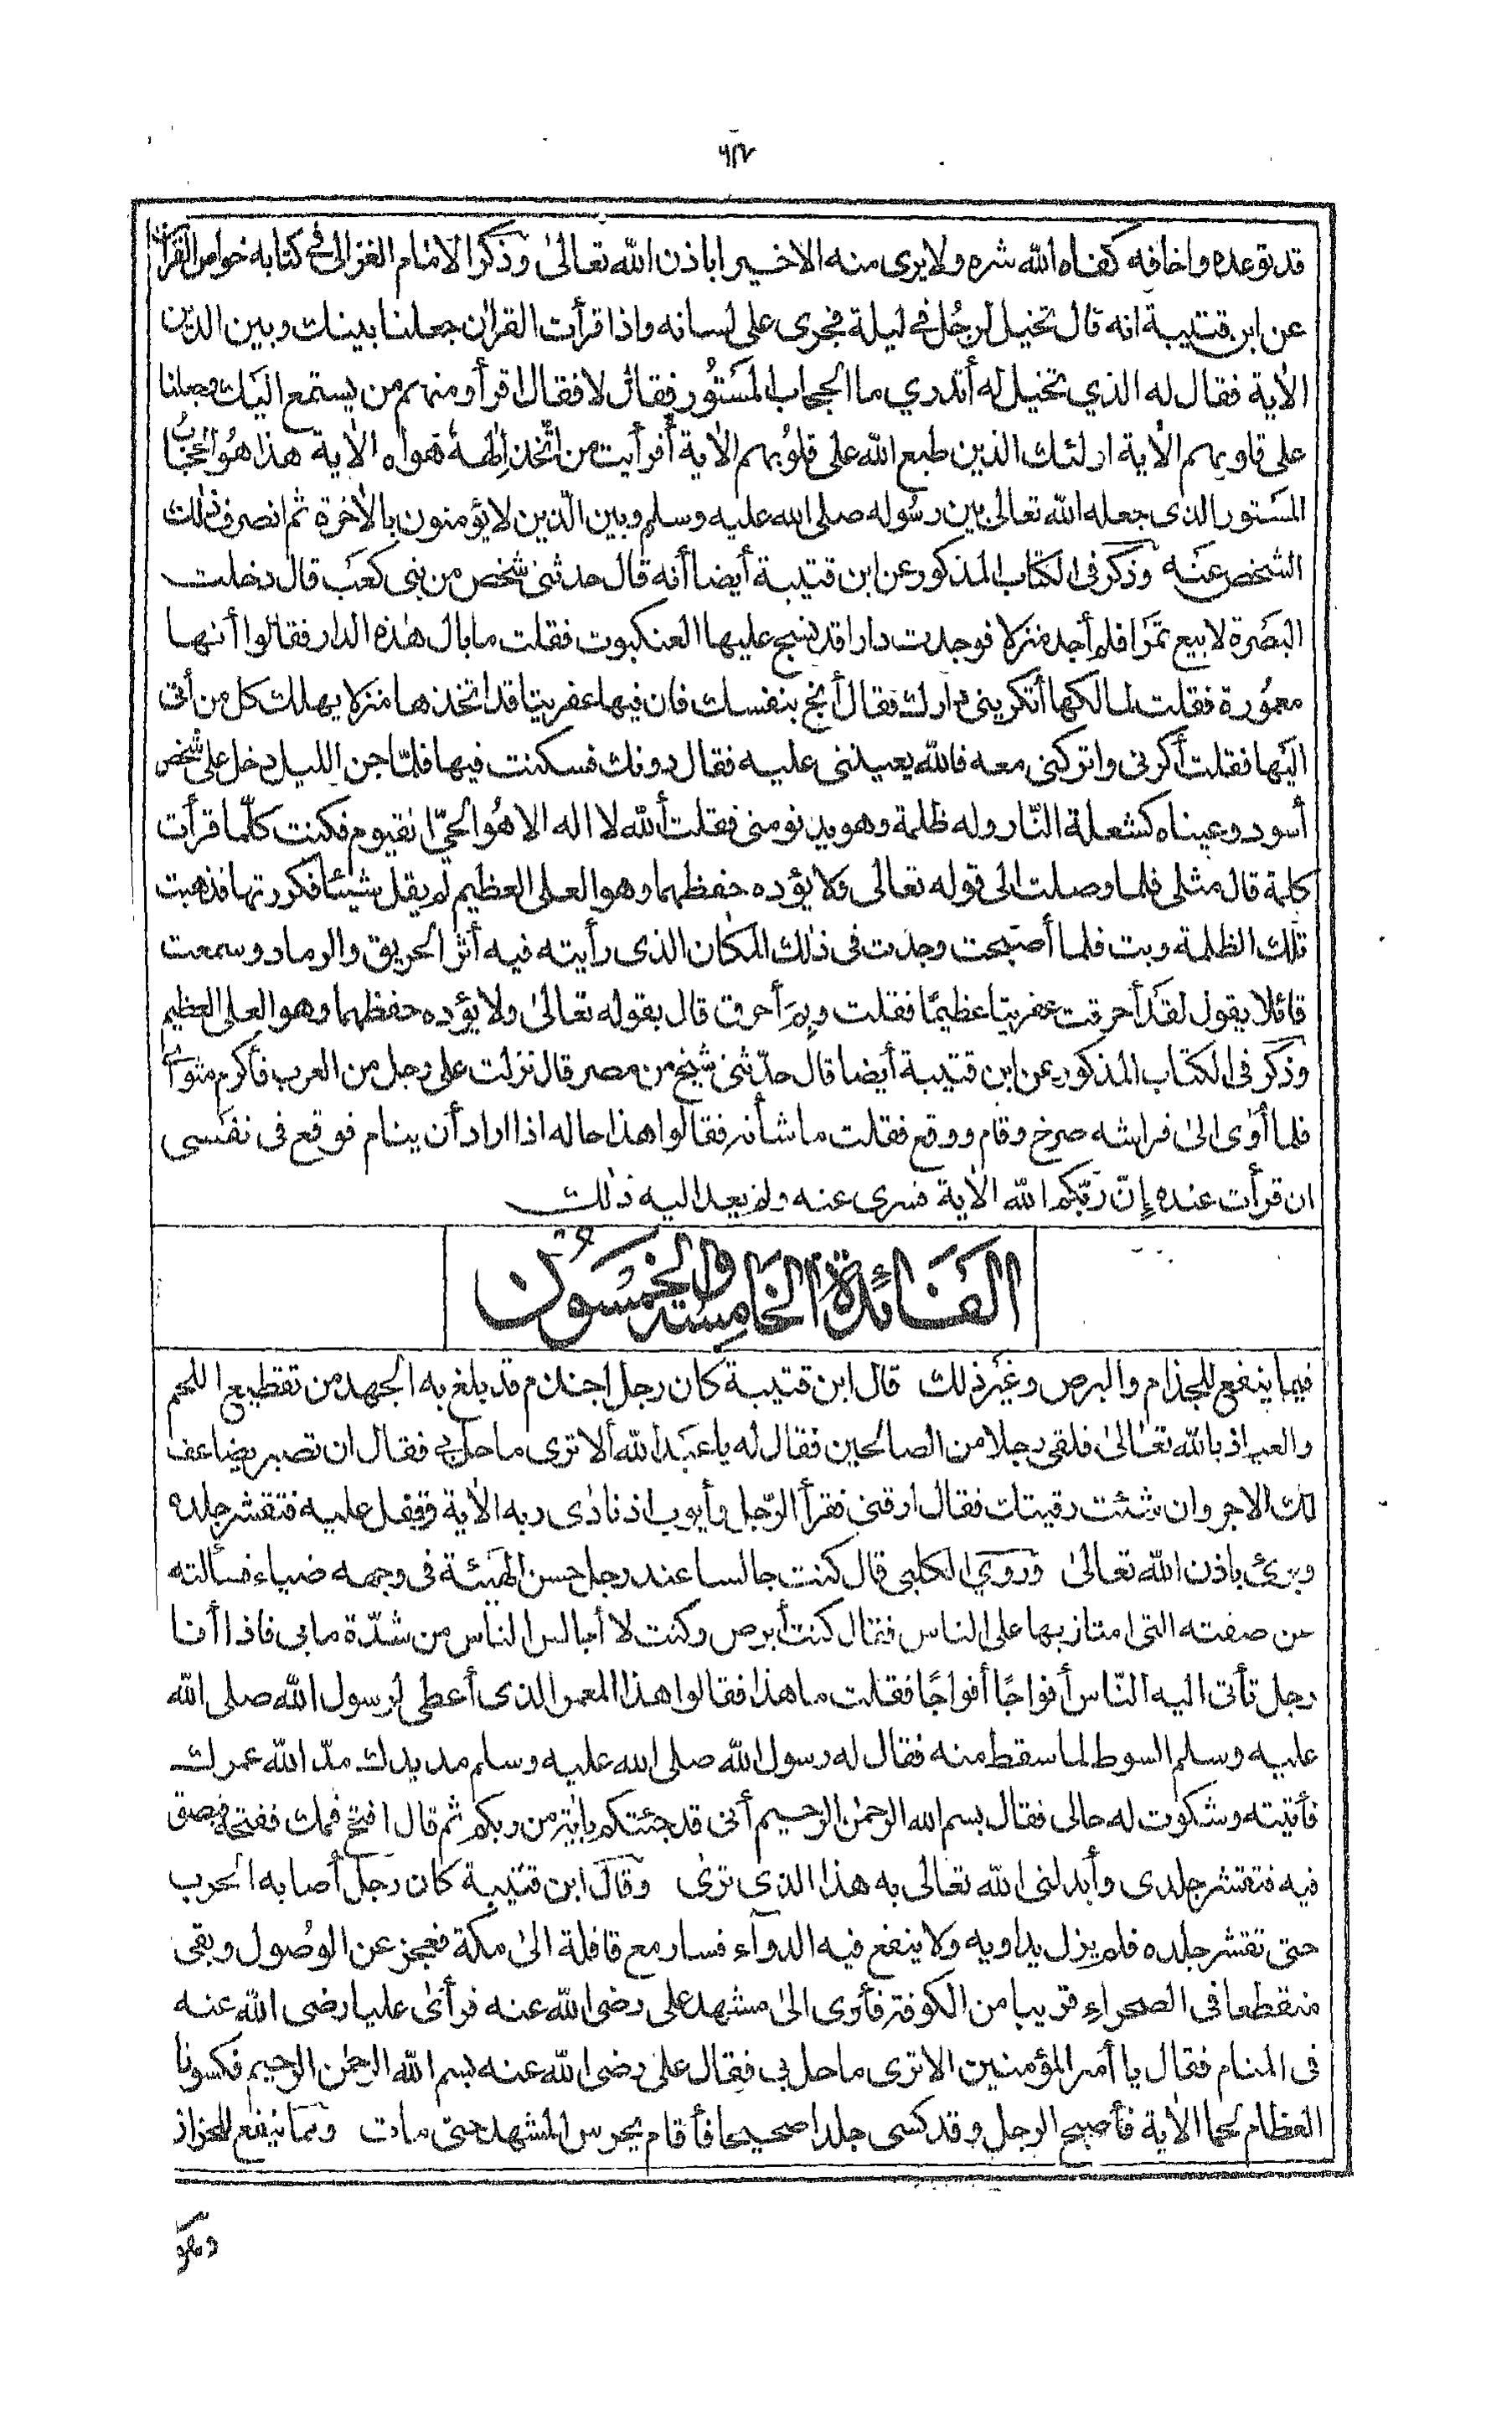 قد توعده واخافه كفاه الله شره ولا يرى منه الا خيرا باذن الله تعالىٰ وذكر الامام الغزالى فى كتابه خواص القرآن
عن ابن قتيبة انه قال تخيل لرجُل فى ليلة فجرى على لسانه واذا قرأت القرآن جعلنا بينك وبين الذين
الآية فقال له الذي تخيل له أتدري ما الحجاب المَستُور فقال لا فقال اقرأ ومنهم من يستمع اليَك وجعلنا
على قلوبهم الآية اولئك الذين طبع الله على قلُوبهم الآية أفرأيت من اتَّخذ إلٰهَهُ هَواه الآية هذا هُو الحجابُ
المَستور الذى جعله الله تعالىٰ بين رسُوله صلى الله عليه وسلم وبين الّذين لا يؤمنون بالآخرة ثم انصرف ذٰلك
الشخص عنَه وذكر فى الكتاب المذكور عن ابن قتيبة أيضا أنه قال حدثنى شخص من بنى كعَب قال دخلت
البَصَرة لابيع تمَرًا فلم أجد منزلا فوجدت دارا قد نسج عليها العنكبوت فقلت ما بال هٰذه الدار فقالوا أنها
معمُورة فقلت لمالكها أتكرينى دارك فقال أنج بنفسك فان فيها عفريتا قد اتخذها منزلا يهلك كل من أتى
اليَها فقلت أكرنى واتركنى معه فالله يعيننى عليه فقال دونك فسكنت فيها فلمّا جن الليل دخل علىّ شخص
أسود وعيناه كشعلة النّار وله ظلمة وهو يدنو منى فقلت ألله لا اله الا هُو الحيّ القيوم فكنت كلّما قرأت
كلمة قال مثلى فلما وصلت الى قوله تعالى ولا يؤده حفظهما وهو العلى العظيم لم يقل شيئًا فكررتها فذهبت
تلك الظلمة وبت فلما أصبحت وجدت فى ذٰلك المكان الذى رأيته فيه أثر الحريق والرماد وسمعت
قائلا يقول لقدَ أحرقت عفريتا عظيمًا فقلت وبِمَ أحرق قال بقوله تعالىٰ ولا يؤده حفظهما وهو العلى العظيم
وذكر فى الكتاب المذكور عن ابن قتيبة أيضا قال حدّثنى شيخ من مصر قال نزلت على رجل من العرب فأكرم مثواى
فلما أوٰى الىٰ فراشه صرخ وقام ووقع فقلت ما شأنه فقالوا هذا حاله اذا اراد أن ينام فوقع فى نفسَى
ان قرأت عنده إنّ رَبّكم الله الآية فسرى عنه ولم يعد اليه ذٰلك
الفَائدة الخامسَة والخمسُون
فيما ينفع للجذام والبرص وغَير ذلك قال ابن قتيبة كان رجل اجذم قد بلغ به الجهد من تقطيع اللحم
والعياذ بالله تعَالىٰ فلقى رجلا من الصالحين فقال له يا عبدَ الله ألا ترى ما حل بى فقال ان تصبر يضاعف
لك الاجر وان شئت رقيتك فقال ارقنى فقرأ الرّجل وأيوب اذ نادى ربه الآية وتفل عليه فتقشر جلده
وبرئ باذن الله تعالىٰ وروي الكلبى قال كنت جالسا عند رجل حسن الهَيئة فى وجهه ضياء فسألته
عن صفته التى امتاز بها على الناس فقال كنت أبرص وكنت لا أجالس الناس من شدّة ما بى فاذا أنا
رجل تأتى اليه النّاس أفواجًا أفواجًا فقلت ما هذا فقالوا هذا المعمر الذى أعطى لرسول الله صلى الله
عليه وسلم السوط لما سقط منه فقال له رسول الله صلى الله عليه وسلم مد يدك مدّ الله عمرك
فأتيته وشكَوت له حالى فقال بسم الله الرحمٰن الرحيم أنى قد جئتكم بآية من ربكم ثم قال افتح فمك ففتحته فبصق
فيه فتقشر جلدى وأبدلنى الله تعالى به هذا الذى ترٰى وقال ابن قتيبة كان رجل أصابه الجرب
حتى تقشر جلده فلم يزل يداويه ولا ينفع فيه الدواء فسار مع قافلة الىٰ مكة فعجز عن الوصُول وبقى
منقطعا فى الصحراء قريبا من الكوفة فأوى الىٰ مشهد على رضى الله عنه فرأىٰ عليا رضى الله عنه
فى المنام فقال يا أمير المؤمنين الا ترى ما حل بى فقال على رضى الله عنه بسم الله الرحمٰن الرحيم فكسونا
العظام لحما الآية فأصبح الرجل وقد كسى جلدا صحيحا فأقام يحرس المشهد حتى مات ومما ينفع للحزاز